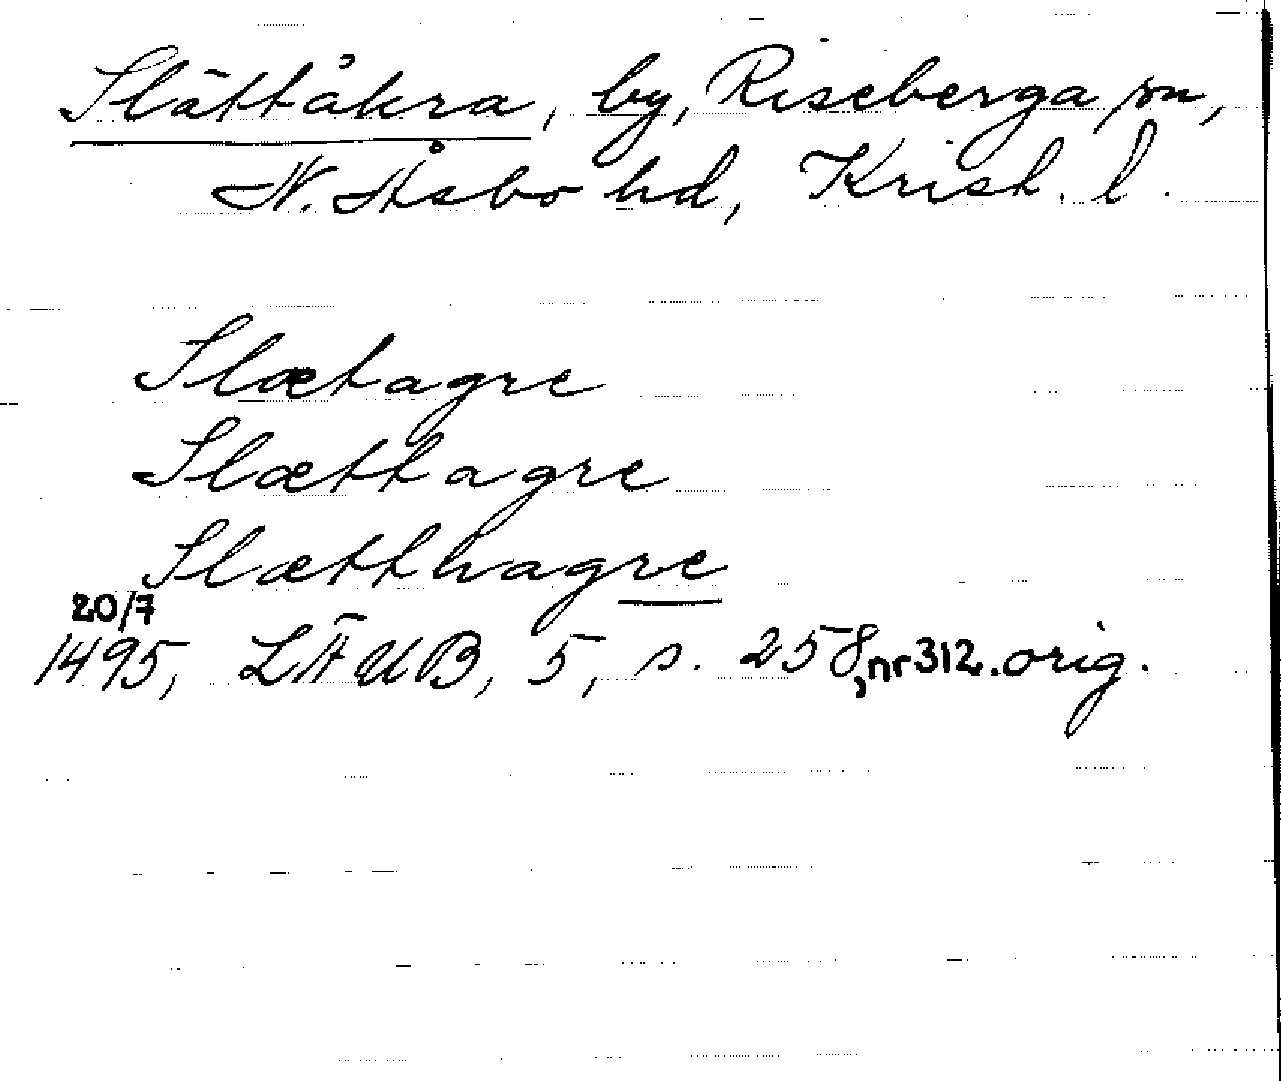 Slättåkra, by, Riseberga sn,
N. Åsbo hd, Krist. l.
Slætagre
Slættagre
Slætthagre
20/7
1495, LÄUB, 5, s. 258, nr 312. orig.